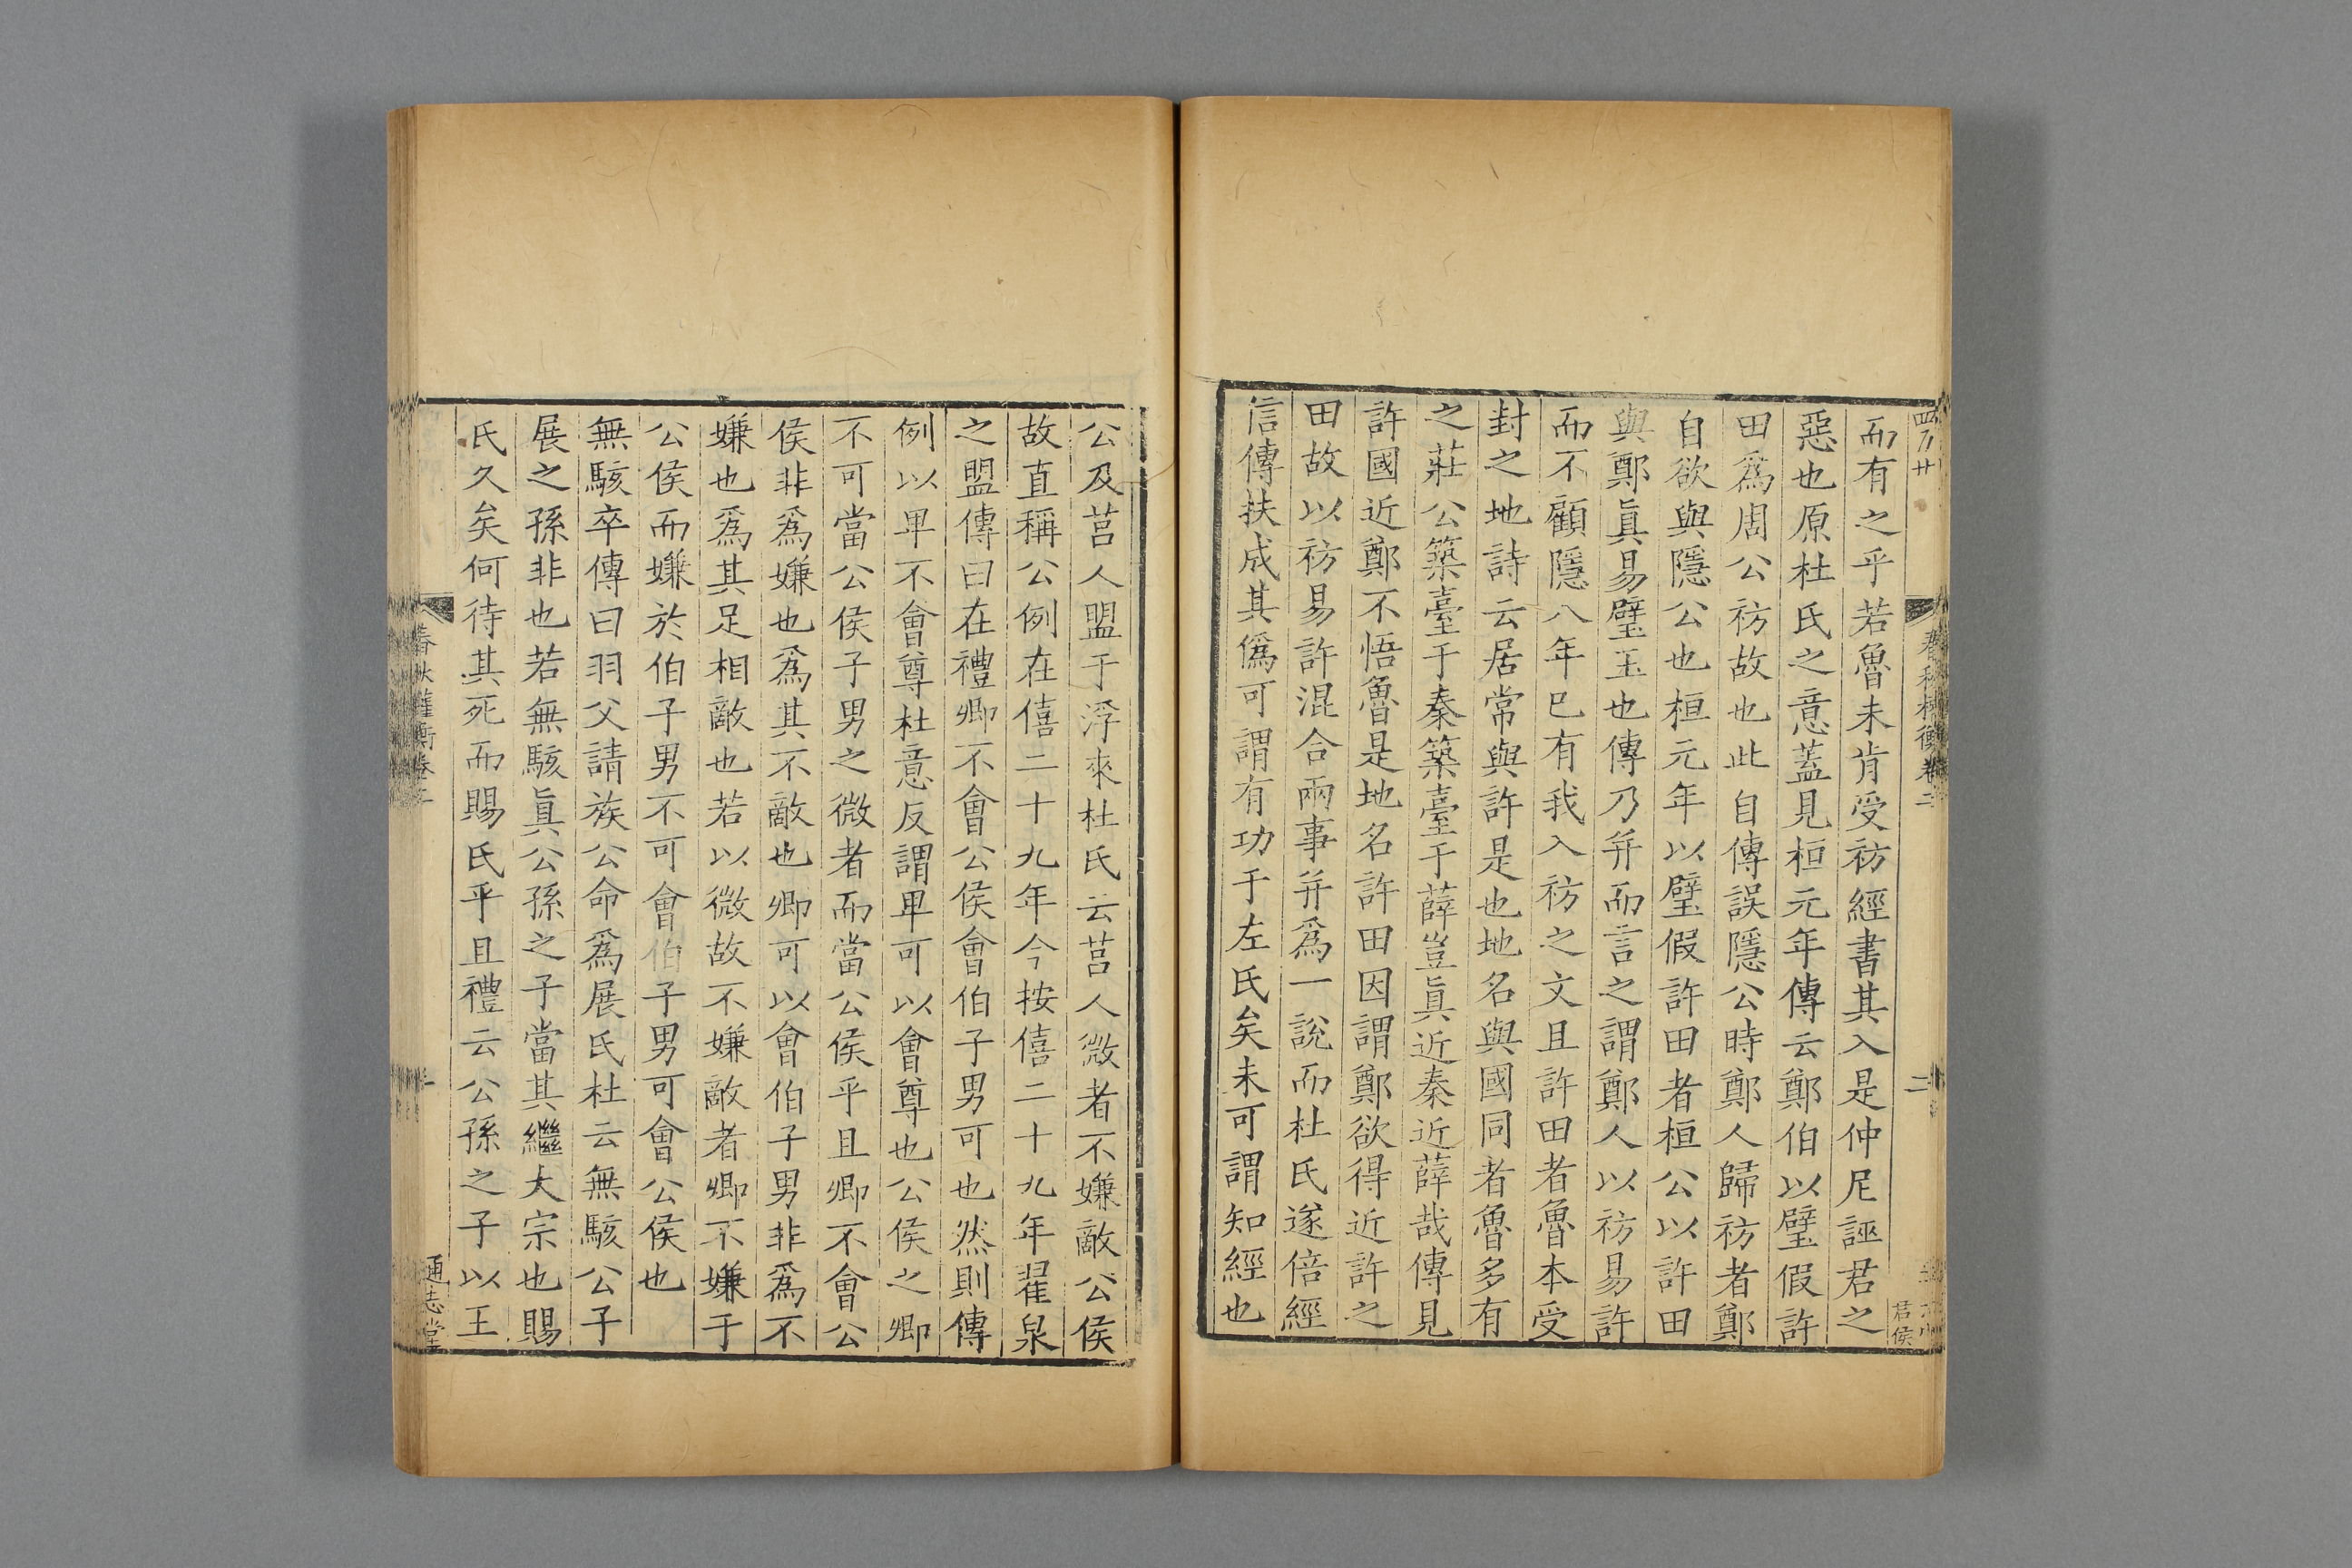 而有之乎若魯未肯受祊經書其入是仲尼誣君之
惡也原杜氏之意蓋見桓元年傳云鄭伯以璧假許
田爲周公祊故也此自傳誤隱公時鄭人歸祊者鄭
自欲與隱公也桓元年以璧假許田者桓公以許田
與鄭眞易璧玉也傳乃并而言之謂鄭人以祊易許
而不顧隱八年已有我入祊之文且許田者魯本受
封之地詩云居常與許是也地名與國同者魯多有
之莊公築臺于秦築臺于薛豈眞近秦近薛哉傳見
許國近鄭不悟魯是地名許田因謂鄭欲得近許之
田故以祊易許混合兩事并爲一說而杜氏遂倍經
信傳扶成其僞可謂有功于左氏矣未可謂知經也
公及莒人盟于浮來杜氏云莒人微者不嫌敵公侯
故直稱公例在僖二十九年今按僖二十九年翟泉
之盟傳曰在禮卿不會公侯會伯子男可也然則傳
例以卑不會尊杜意反謂卑可以會尊也公侯之卿
不可當公侯子男之微者而當公侯乎且卿不會公
侯非爲嫌也爲其不敵也卿可以會伯子男非爲不
嫌也爲其足相敵也若以微故不嫌敵者卿不嫌于
公侯而嫌於伯子男不可會伯子男可會公侯也
無駭卒傳曰羽父請族公命爲展氏杜云無駭公子
展之孫非也若無駭眞公孫之子當其繼大宗也賜
氏久矣何待其死而賜氏乎且禮云公孫之子以王
春秋權衡卷二
二
君侯
通志堂